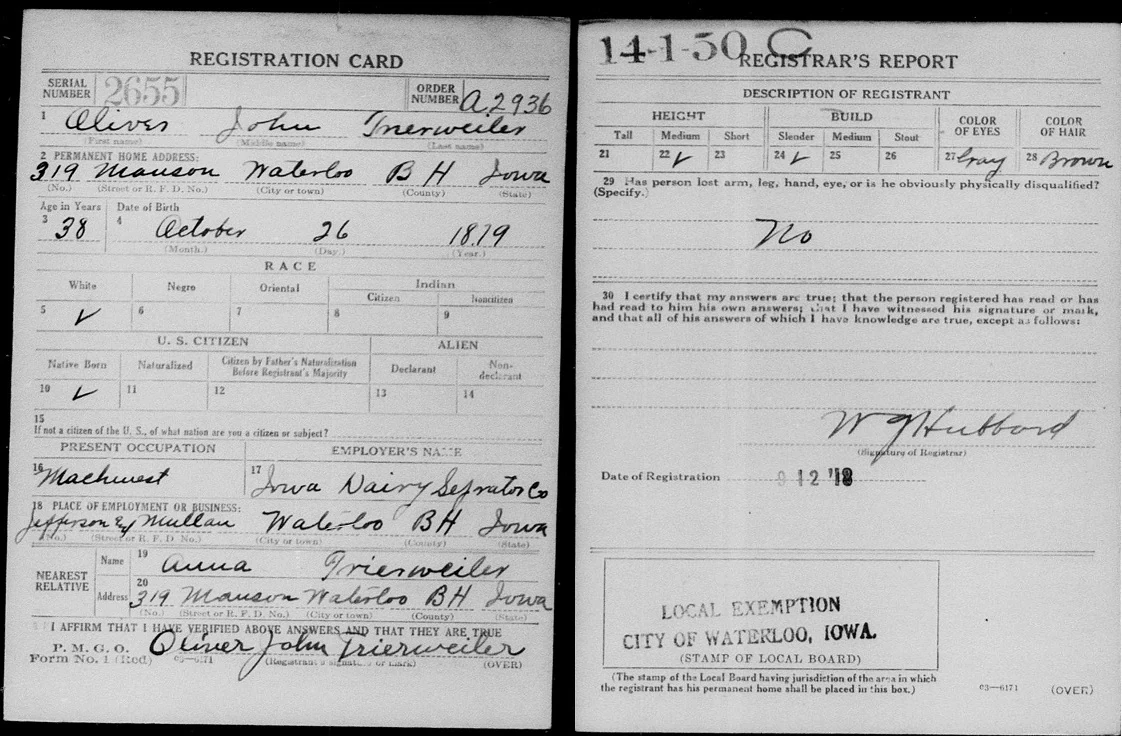 REGISTRATION CARD
SERIAL NUMBER 2655 ORDER NUMBER A2936
1 Oliver John Trierweiler
(First name) (Middle name) (Last name)
2 PERMANENT HOME ADDRESS:
319 Manson Waterloo B H Iowa
(No.) (Street or R. F. D. No.) (City or town) (County) (State)
Age in Years Date of Birth
3 38 4 October 26 1879
(Month.) (Day.) (Year.)
RACE
White Negro Oriental Indian
Citizen Noncitizen
5 ✓ 6 7 8 9
U. S. CITIZEN ALIEN
Native Born Naturalized Citizen by Father's Naturalization Before Registrant's Majority Declarant Non-declarant
10 ✓ 11 12 13 14
15
If not a citizen of the U. S., of what nation are you a citizen or subject?
PRESENT OCCUPATION EMPLOYER'S NAME
16 Machinest 17 Iowa Dairy Seprator Co
18 PLACE OF EMPLOYMENT OR BUSINESS:
Jefferson & Mullan Waterloo BH Iowa
(No.) (Street or R. F. D. No.) (City or town) (County) (State)
NEAREST RELATIVE
Name 19 Anna Trierweiler
Address 20 319 Manson Waterloo BH Iowa
(No.) (Street or R. F. D. No.) (City or town) (County) (State)
I AFFIRM THAT I HAVE VERIFIED ABOVE ANSWERS AND THAT THEY ARE TRUE
P. M. G. O. Oliver John Trierweiler
Form No. 1 (Red) 03—6171 (Registrant's signature or mark) (OVER)
14-1-50 C
REGISTRAR'S REPORT
DESCRIPTION OF REGISTRANT
HEIGHT BUILD COLOR OF EYES COLOR OF HAIR
Tall Medium Short Slender Medium Stout
21 22 ✓ 23 24 ✓ 25 26 27 Gray 28 Brown
29 Has person lost arm, leg, hand, eye, or is he obviously physically disqualified?
(Specify.)
No
30 I certify that my answers are true; that the person registered has read or has
had read to him his own answers; that I have witnessed his signature or mark,
and that all of his answers of which I have knowledge are true, except as follows:
W J Hubbard
(Signature of Registrar)
Date of Registration 9 12 '18
LOCAL EXEMPTION
CITY OF WATERLOO, IOWA.
(STAMP OF LOCAL BOARD)
(The stamp of the Local Board having jurisdiction of the area in which
the registrant has his permanent home shall be placed in this box.)
03—6171 (OVER)